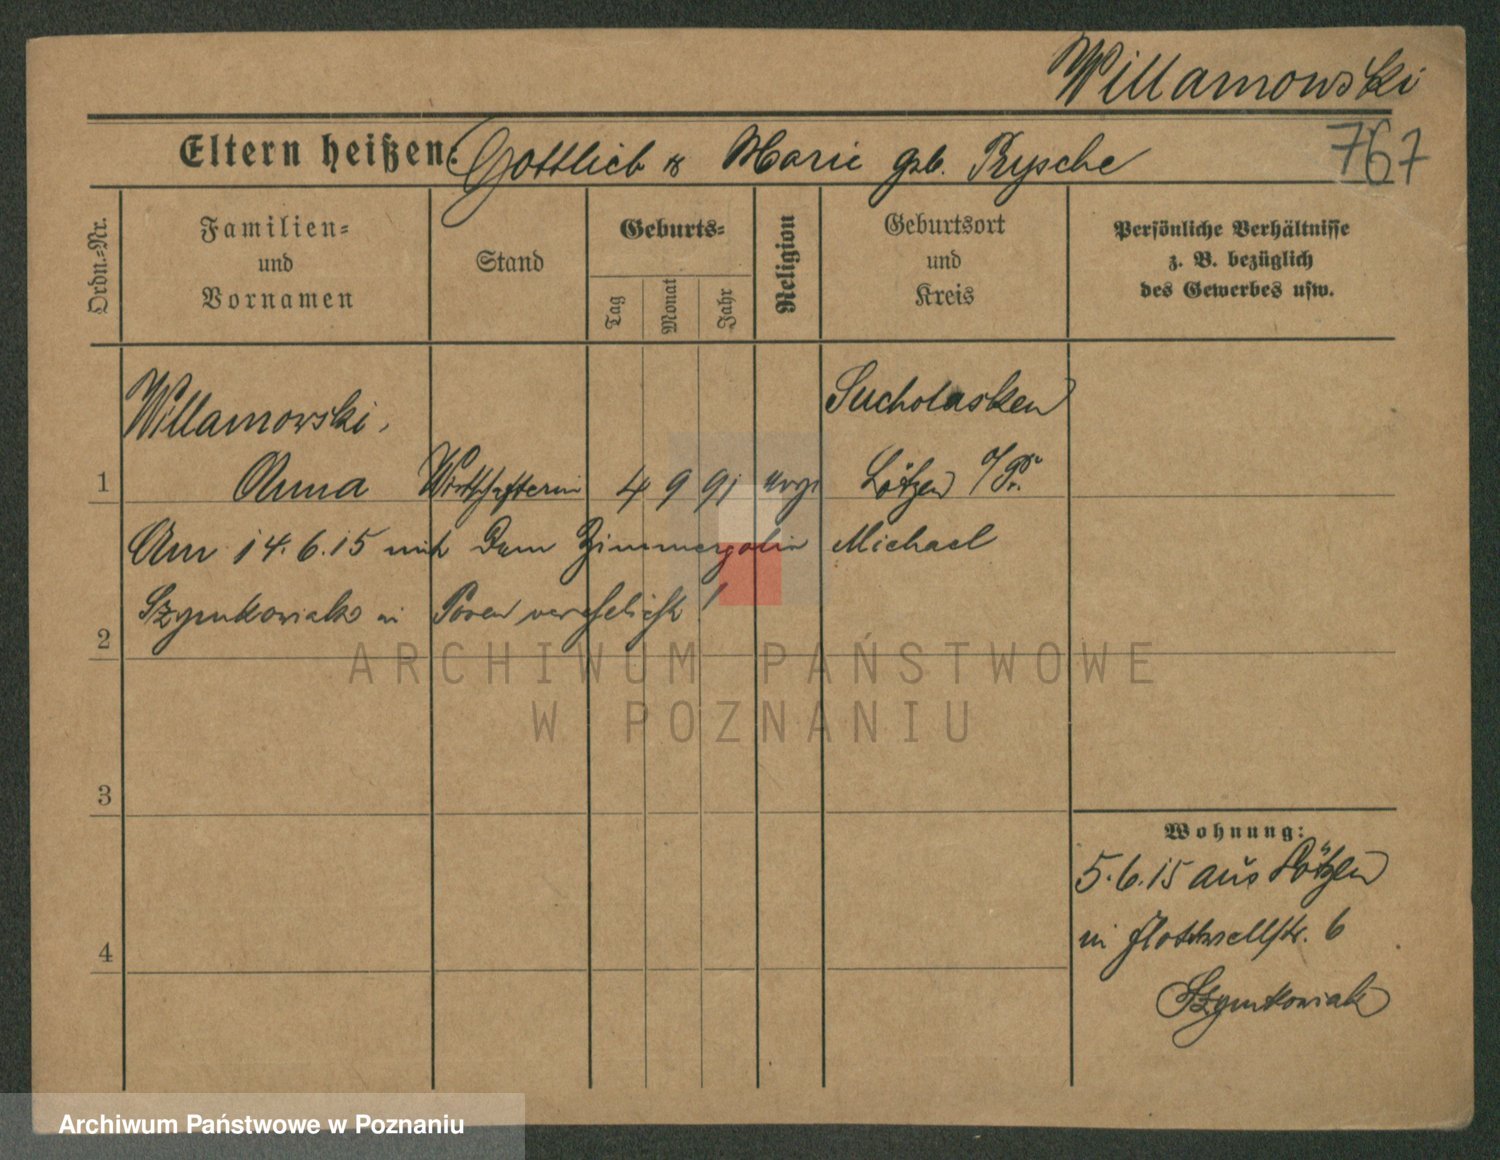 Willamowski
Eltern heißen: Gottlieb & Marie geb. Prysche
767
Ordn.-Nr.
Familien-
und
Vornamen
Stand
Geburts-
Tag
Monat
Jahr
Religion
Geburtsort
und
Kreis
Persönliche Verhältnisse
z. B. bezüglich
des Gewerbes usw.
Willamowski, Sucholasken
1 Anna Wirtschafterin 4 9 91 evgl Lötzen O/Pr.
Am 14.6.15 mit dem Zimmergesellen Michael
Szymkowiak in Posen verehelicht!
2
3
4
Wohnung:
5.6.15 aus Lötzen
in Flottwellstr. 6
Szymkowiak
ARCHIWUM PAŃSTWOWE
W POZNANIU
Archiwum Państwowe w Poznaniu